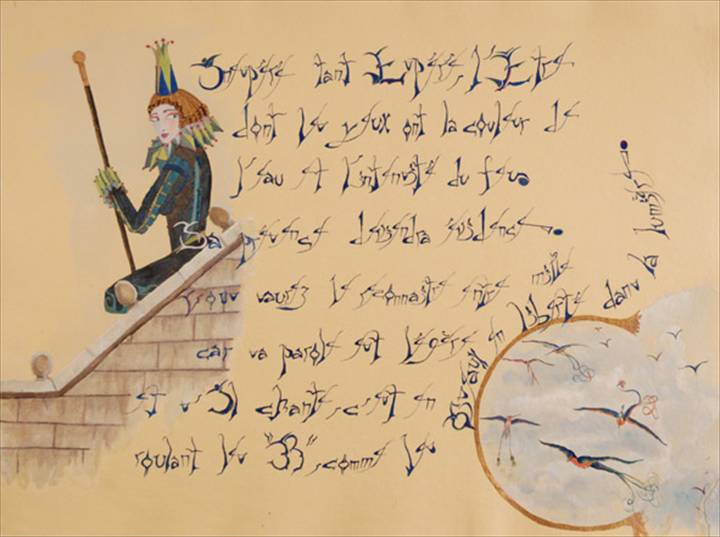 Inespéré tant Espéré, l'Etre
dont les yeux ont la couleur de
l'eau et l'intensité du feu.
Sa présence deviendra évidence.
Vous saurez le reconnaitre entre mille
car sa parole est légère
et s'Il chante, c'est en
roulant les "R", comme les
Oiseaux en liberté dans la lumière.